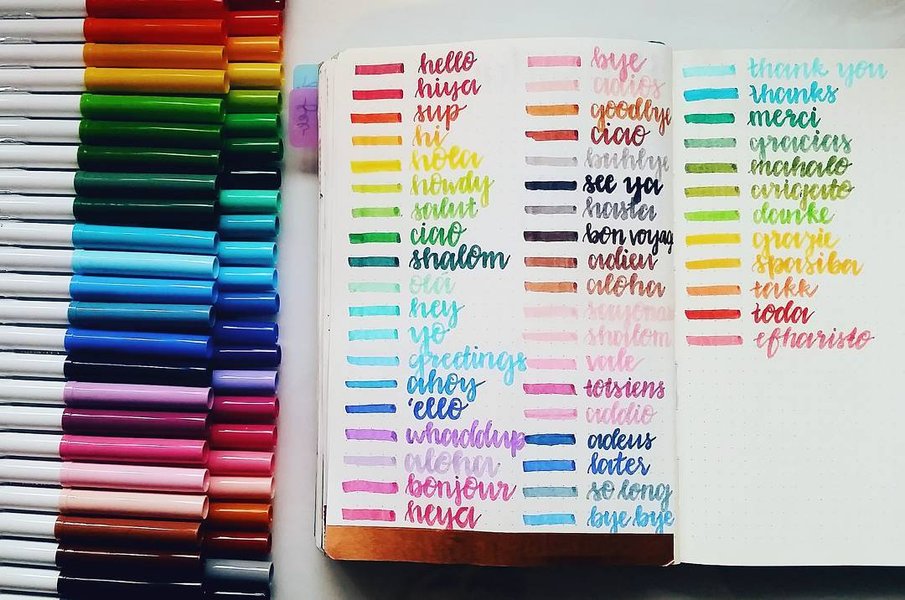 hello
hiya
sup
hi
hola
howdy
salut
ciao
shalom
olá
hey
yo
greetings
ahoy
'ello
whaddup
aloha
bonjour
heya
bye
adios
goodbye
ciao
buhbye
see ya
hasta
bon voyag
adieu
aloha
shalom
vale
totsiens
addio
adeus
later
so long
bye bye
thank you
thanks
merci
gracias
mahalo
arigato
danke
grazie
spasiba
takk
toda
efharisto